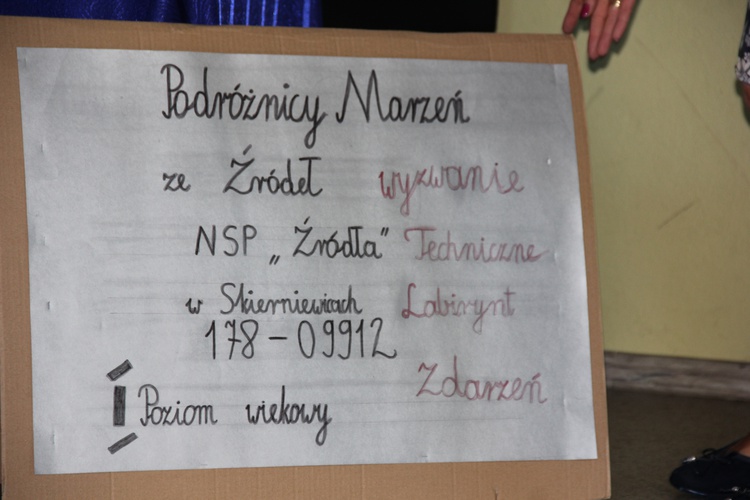 Podróżnicy Marzeń
ze Źródeł wyzwanie
NSP „Źródła” Techniczne
w Skierniewicach Labirynt
178-09912
Zdarzeń
I Poziom wiekowy